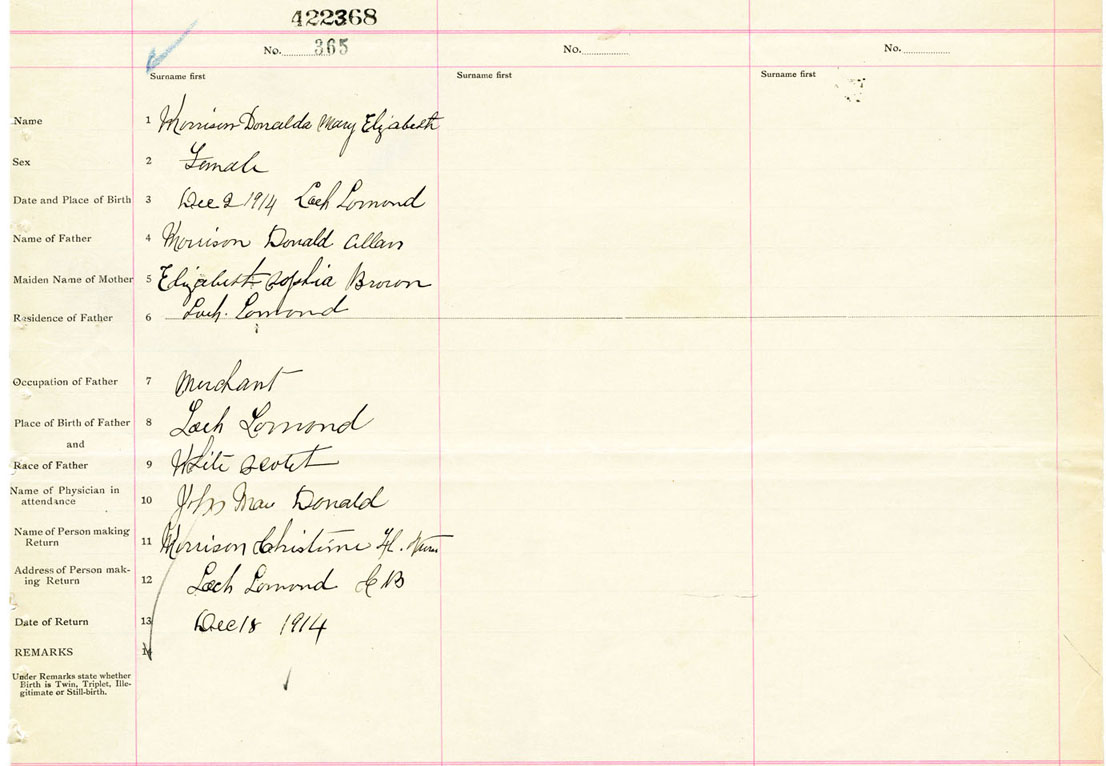 422368
No. 365 No. No.
Surname first Surname first Surname first
Name 1 Morrison Donalda Mary Elizabeth
Sex 2 Female
Date and Place of Birth 3 Dec 2 1914 Loch Lomond
Name of Father 4 Morrison Donald Allan
Maiden Name of Mother 5 Elizabeth Sophia Brown
Residence of Father 6 Loch. Lomond
Occupation of Father 7 Merchant
Place of Birth of Father 8 Loch Lomond
and
Race of Father 9 White Scotch
Name of Physician in
attendance 10 John Mac Donald
Name of Person making
Return 11 Morrison Christime
Address of Person mak-
ing Return 12 Loch Lomond C B
Date of Return 13 Dec 18 1914
REMARKS 14
Under Remarks state whether
Birth is Twin, Triplet, Ille-
gitimate or Still-birth.